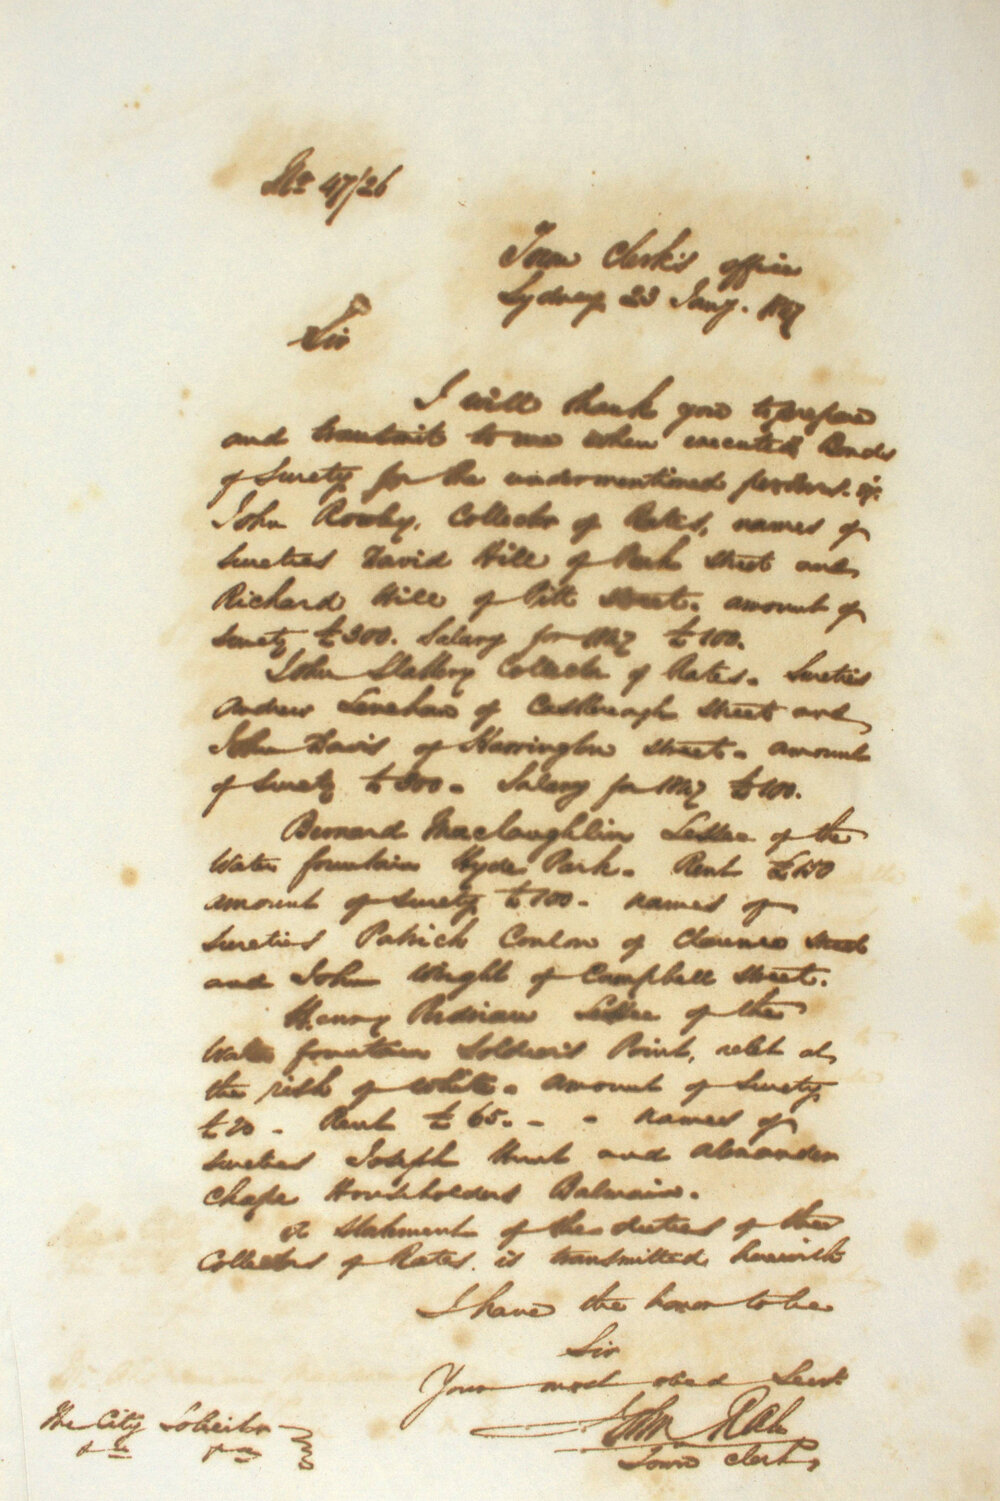 No 47/26
Town Clerk's office
Sydney 23 Jany. 1847
Sir
I will thank you to prepare
and transmit to me when executed Bonds
of Surety for the undermentioned persons. viz.
John Rowley, Collector of Rates, names of
Sureties David Hill of Park Street and
Richard Hill of Pitt Street. amount of
Surety £300. Salary for 1847 £100.
John Slattery Collector of Rates. Sureties
Andrew Lenehan of Castlereagh Street and
John Davis of Harrington Street. amount
of Surety £300. Salary for 1847 £100.
Bernard Maclaughlin Lessee of the
Water fountain Hyde Park. Rent £150
amount of Surety £100. names of
Sureties Patrick Conlon of Clarence Street
and John Wright of Campbell Street.
Henry Lessee of the
Water fountain Soldiers Point, relet at
the risk of White. amount of Surety
£20 - Rent £65. - - names of
Sureties Joseph Hunt and Alexander
Chape Householders Balmain.
A Statement of the duties of the
Collectors of Rates is transmitted herewith
I have the honor to be
Sir
Your most obed Servt
John Rae
Town Clerk
The City Solicitor
&c &c